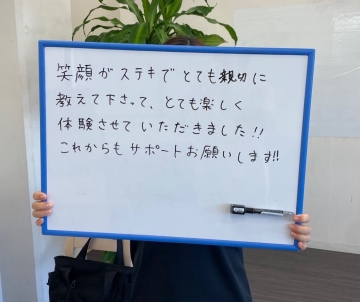 笑顔がステキでとても親切に
教えて下さって、とても楽しく
体験させていただきました!!
これからもサポートお願いします!!